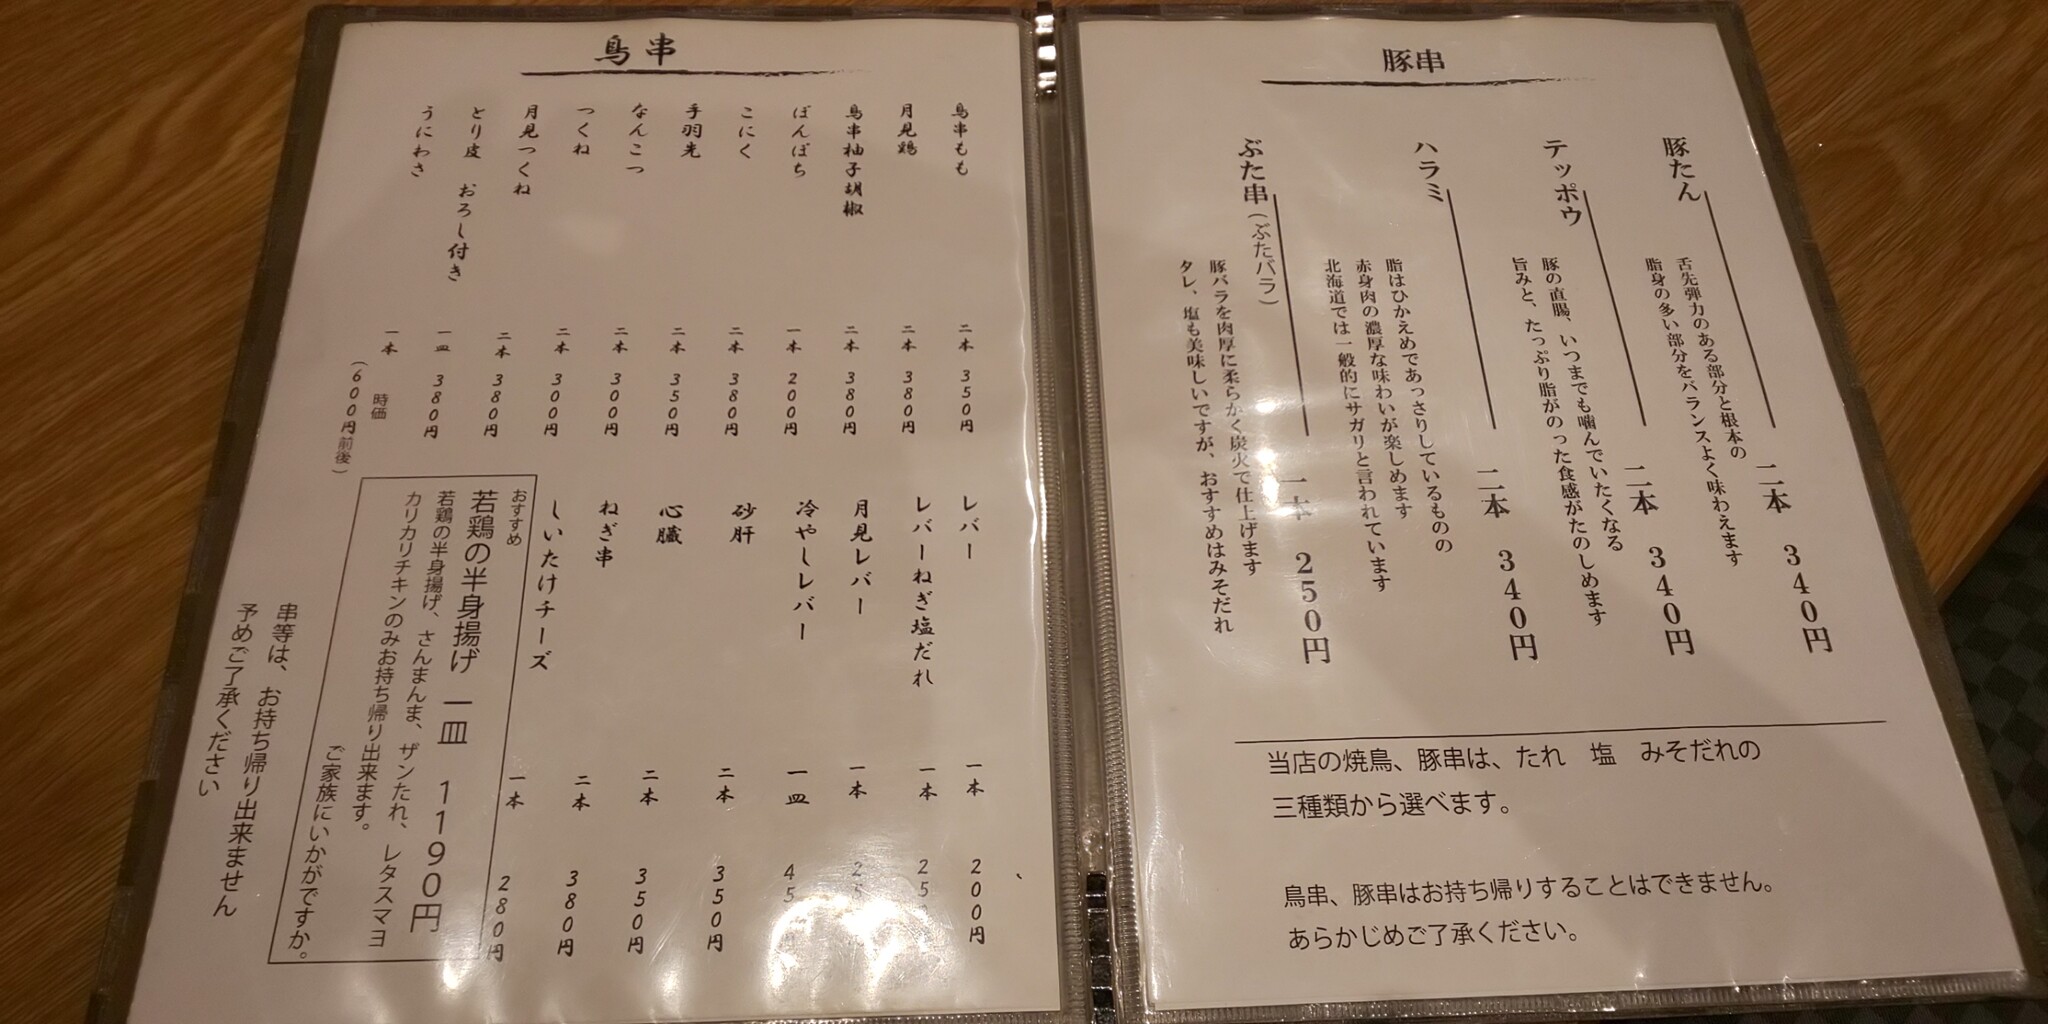 鳥串
鳥串もも 二本 350円
月見鶏 二本 380円
鳥串柚子胡椒 二本 380円
ぼんぼち 一本 200円
こにく 二本 380円
手羽先 二本 350円
なんこつ 二本 300円
つくね 二本 300円
月見つくね 二本 380円
とり皮 おろし付き 一皿 380円
うにわさ 一本 時価
(600円前後)
レバー 一本 200円
レバーねぎ塩だれ 一本 25
月見レバー 一本 25
冷やしレバー 一皿 45
砂肝 二本 350円
心臓 二本 350円
ねぎ串 二本 380円
しいたけチーズ 一本 280円
おすすめ
若鶏の半身揚げ 一皿 1190円
若鶏の半身揚げ、さんまんま、ザンたれ、レタスマヨ
カリカリチキンのみお持ち帰り出来ます。
ご家族にいかがですか。
串等は、お持ち帰り出来ません
予めご了承ください
豚串
豚たん 二本 340円
舌先弾力のある部分と根本の
脂身の多い部分をバランスよく味わえます
テッポウ 二本 340円
豚の直腸、いつまでも噛んでいたくなる
旨みと、たっぷり脂がのった食感がたのしめます
ハラミ 二本 340円
脂はひかえめであっさりしているものの
赤身肉の濃厚な味わいが楽しめます
北海道では一般的にサガリと言われています
ぶた串(ぶたバラ) 一本 250円
豚バラを肉厚に柔らかく炭火で仕上げます
タレ、塩も美味しいですが、おすすめはみそだれ
当店の焼鳥、豚串は、たれ 塩 みそだれの
三種類から選べます。
鳥串、豚串はお持ち帰りすることはできません。
あらかじめご了承ください。